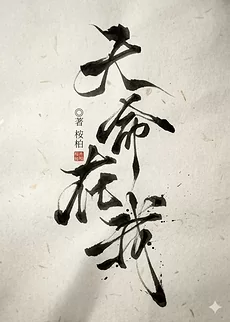 天命在我
◎著 桉柏